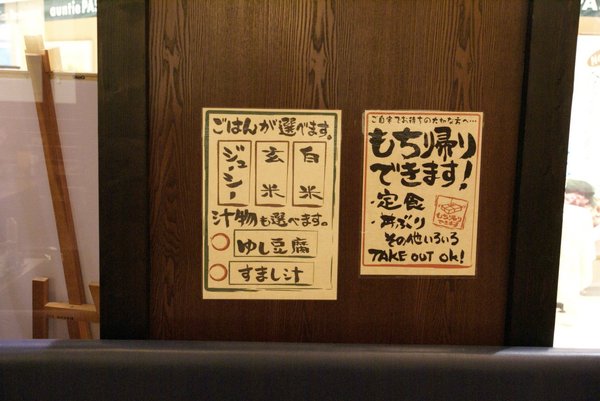 auntie PA
ごはんが選べます。
白米
玄米
ジューシー
汁物も選べます。
ゆし豆腐
すまし汁
ご自宅でお待ちの大切な方へ…
もち帰り
できます!
・定食
・丼ぶり
その他いろいろ
TAKE OUT OK!
もち帰り
できます